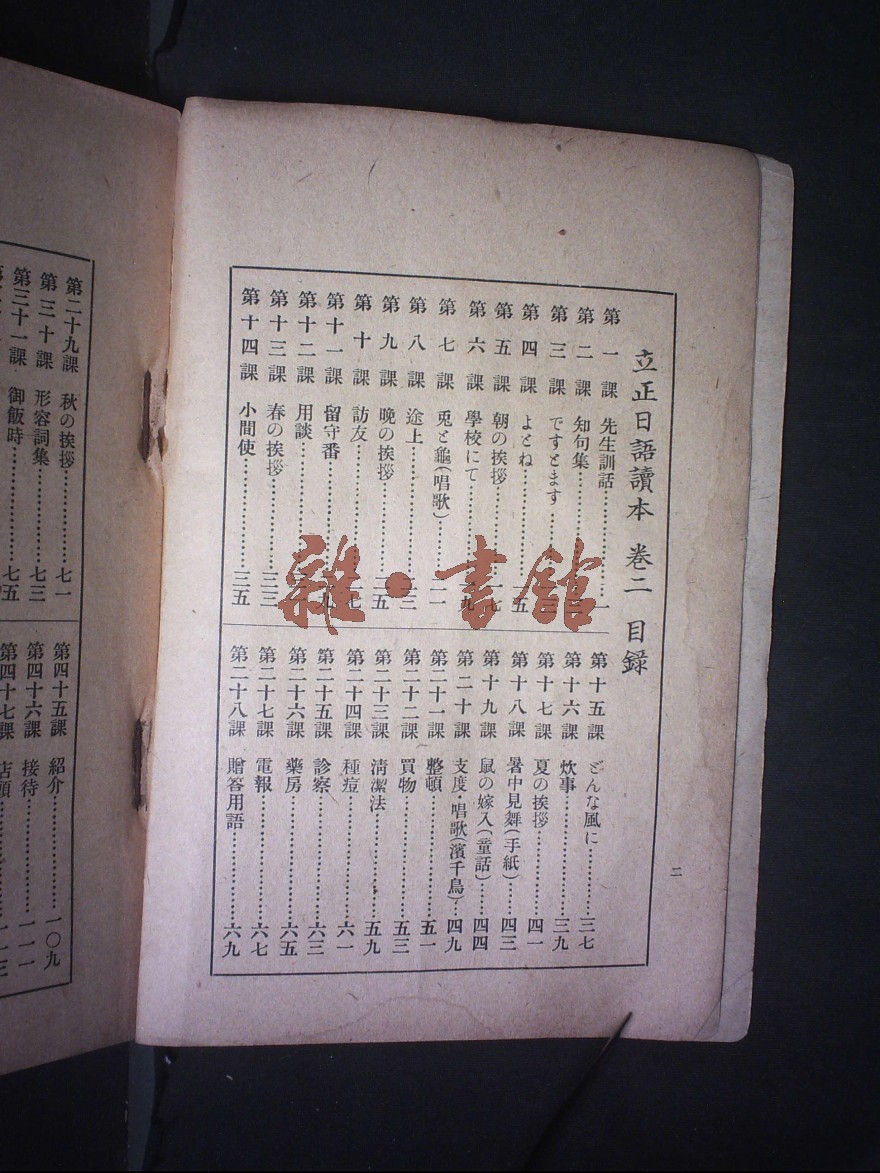 立正日語讀本 卷二 目錄
第一課 先生訓話………一
第二課 知句集………
第三課 ですとます………
第四課 よとね………五
第五課 朝の挨拶………七
第六課 學校にて………九
第七課 兎と龜(唱歌)………一一
第八課 途上………三
第九課 晩の挨拶………五
第十課 訪友………七
第十一課 留守番………九
第十二課 用談………
第十三課 春の挨拶………三三
第十四課 小間使………三五
第十五課 どんな風に………三七
第十六課 炊事………三九
第十七課 夏の挨拶………四一
第十八課 暑中見舞(手紙)………四三
第十九課 鼠の嫁入(童話)………四四
第二十課 支度・唱歌(濱千鳥)…四九
第二十一課 整頓………五一
第二十二課 買物………五三
第二十三課 淸潔法………五九
第二十四課 種痘………六一
第二十五課 診察………六三
第二十六課 藥房………六五
第二十七課 電報………六七
第二十八課 贈答用語………六九
二
第二十九課 秋の挨拶………七一
第三十課 形容詞集………七三
第三十一課 御飯時………七五
第四十五課 紹介………一〇九
第四十六課 接待………一一一
第四十七課 店頭………一一三
雜·書館